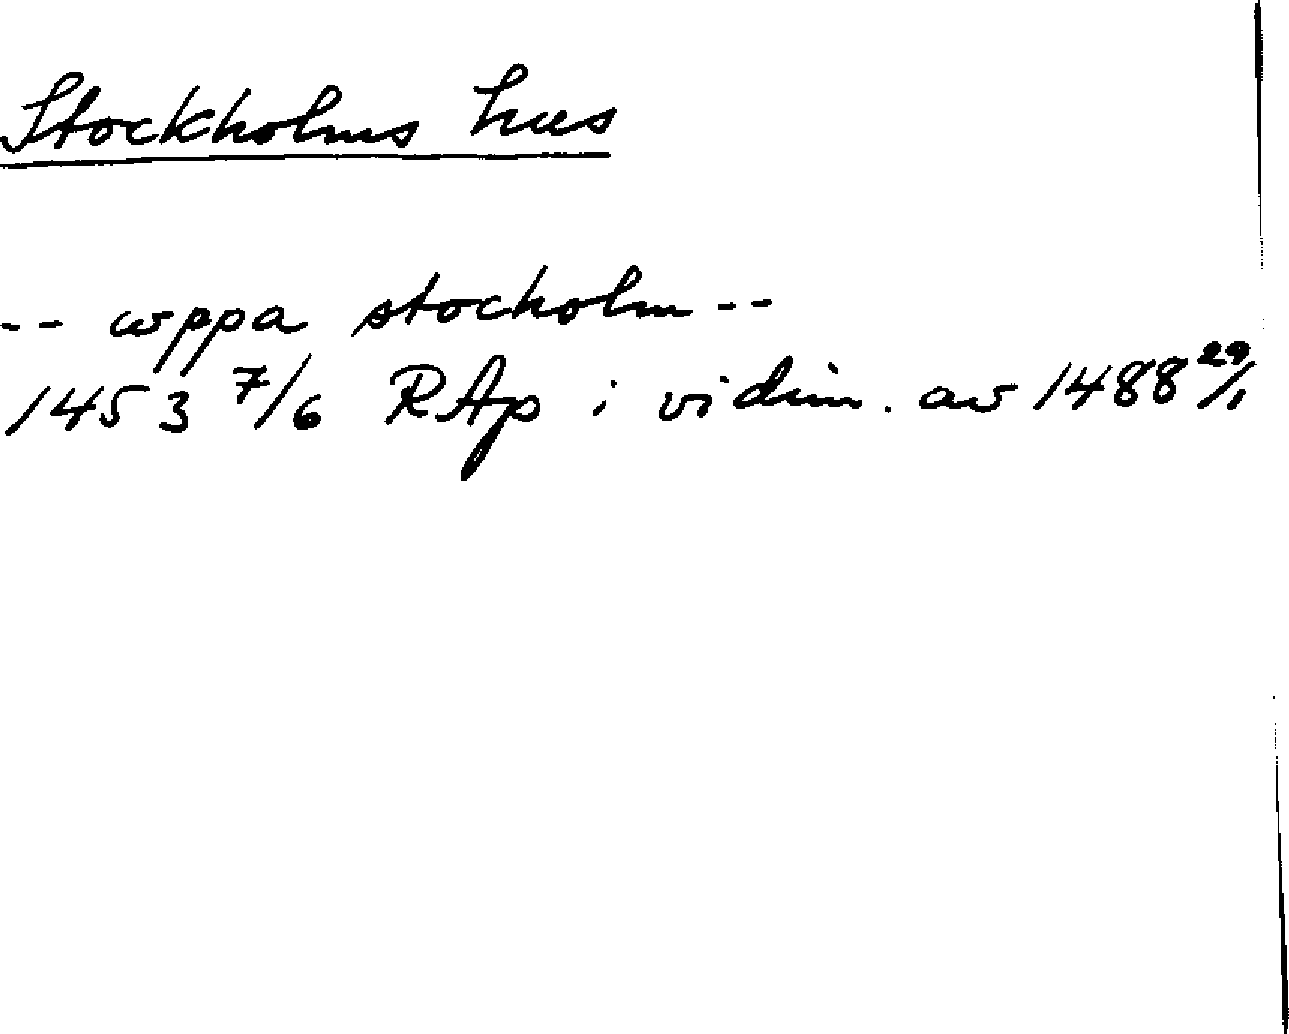 Stockholms hus
-- wppa stocholm --
1453 7/6 RAp i vidim. av 1488 29/1